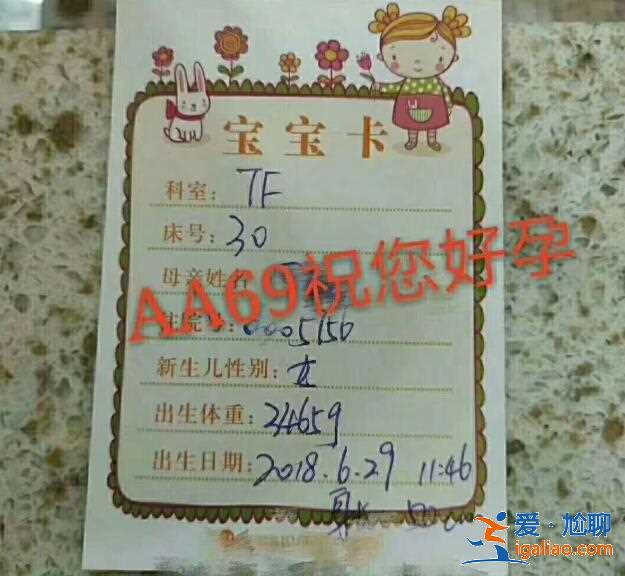 宝宝卡
科室: 7F
床号: 30
母亲姓名
AA69祝您好孕
住院号: 0005156
新生儿性别: 女
出生体重: 3465g
出生日期: 2018.6.29 11:46
身长 50cm
爱·尴聊
igaliao.com